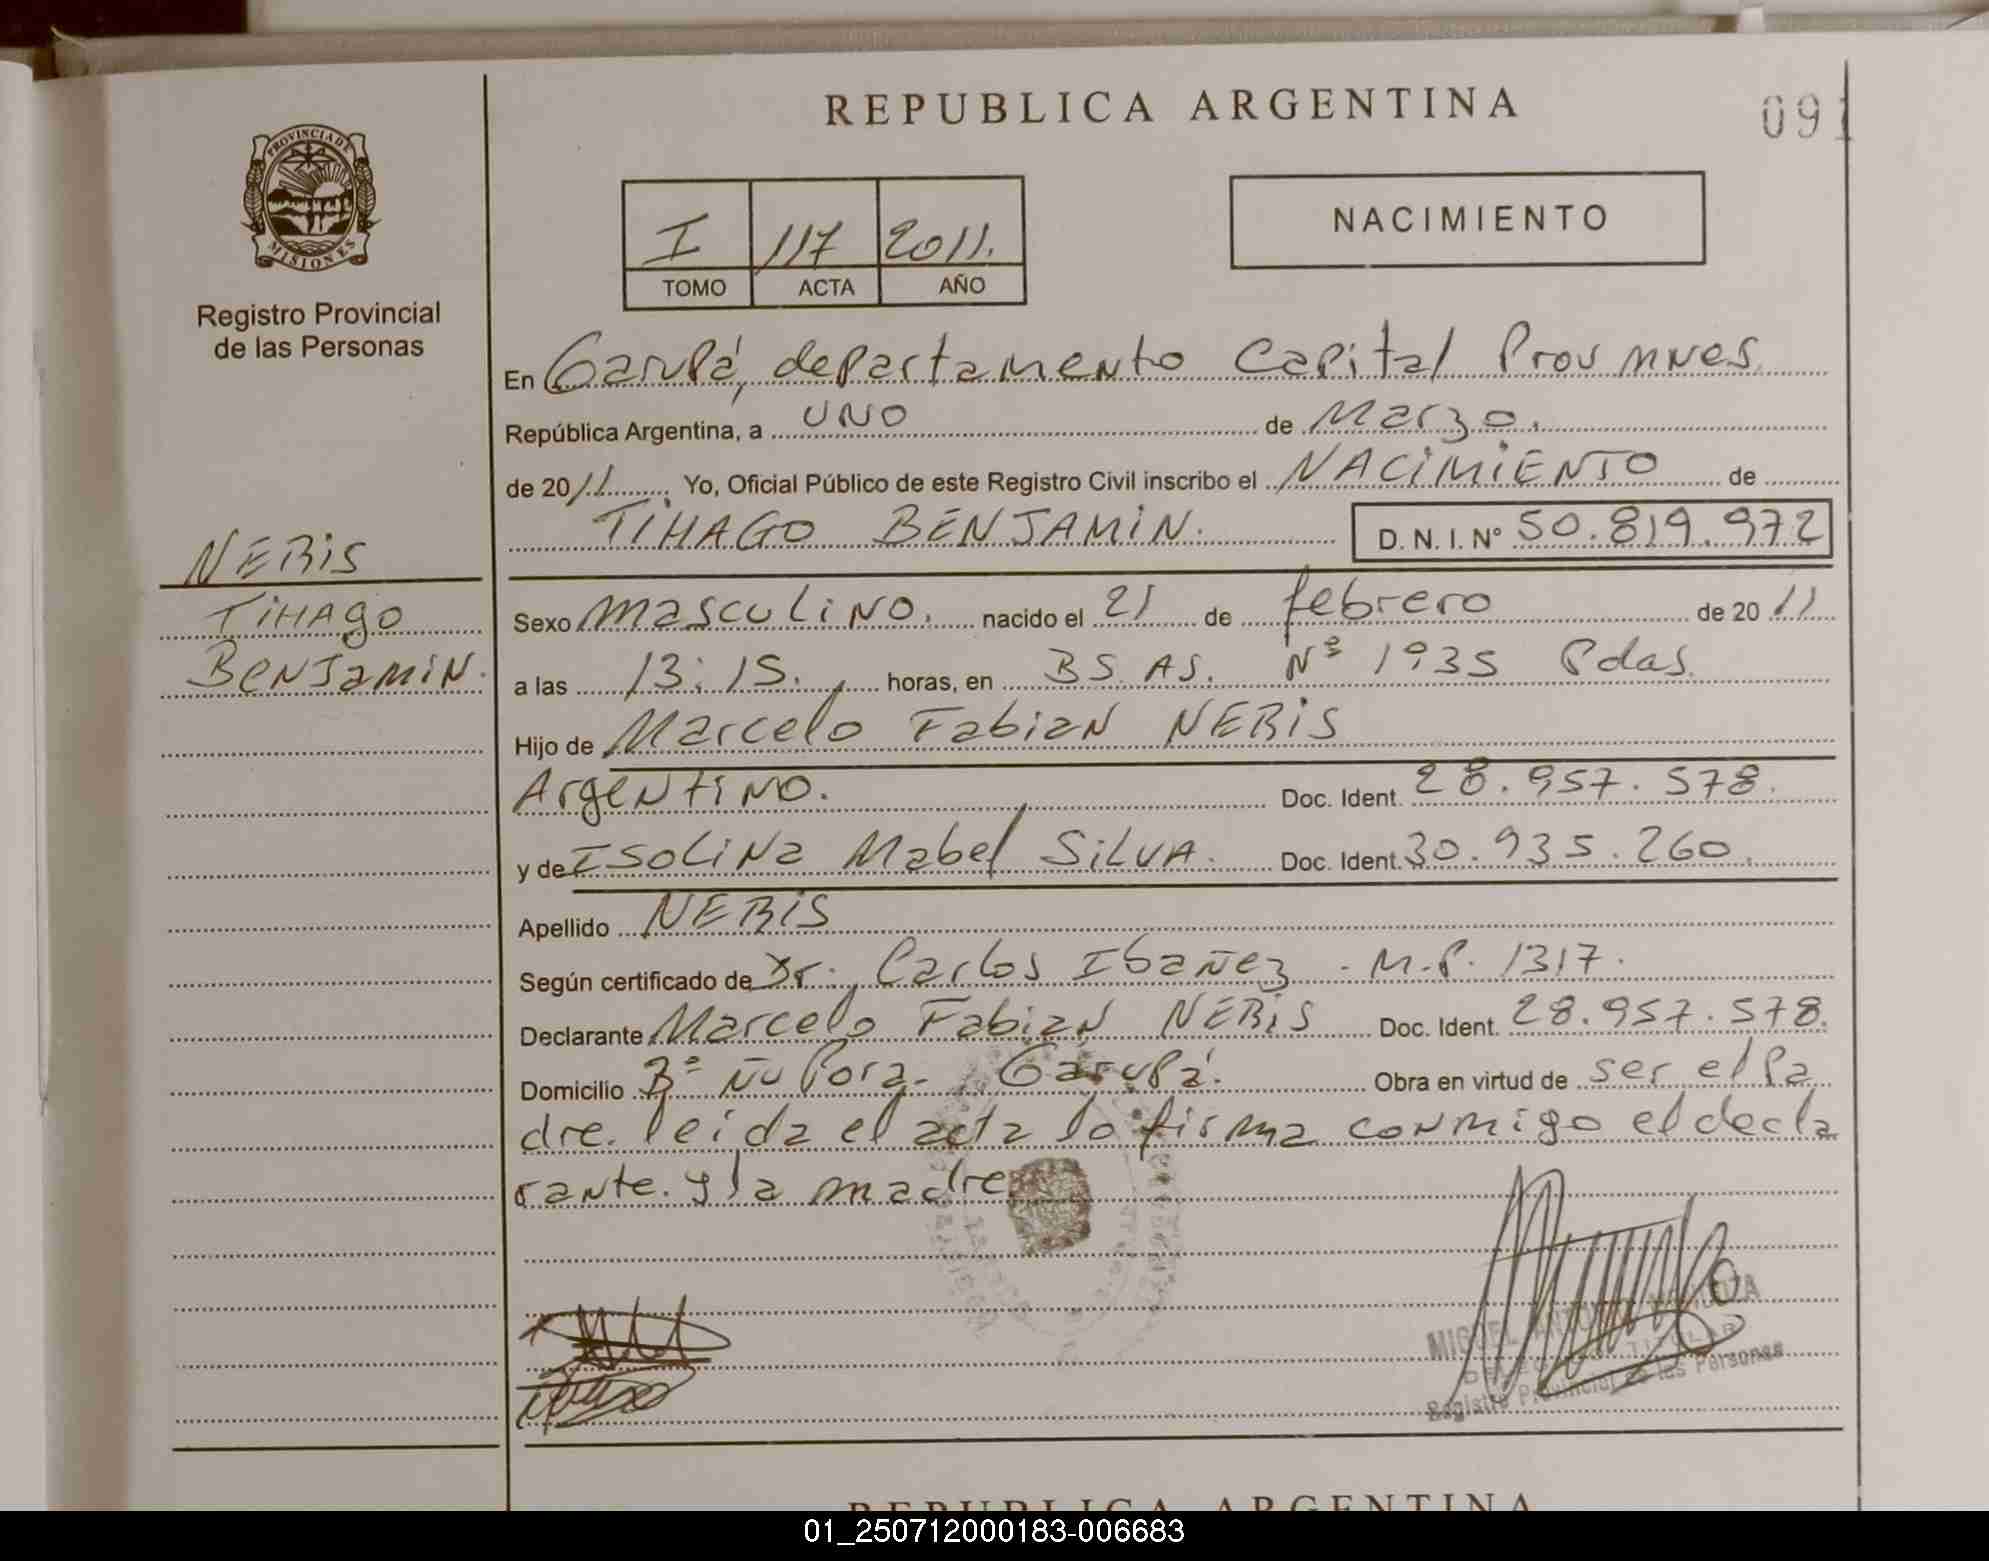 REPUBLICA ARGENTINA
091
PROVINCIA DE
MISIONES
Registro Provincial
de las Personas
I 117 2011.
TOMO ACTA AÑO
NACIMIENTO
En Garupá, departamento Capital Prov Mnes
República Argentina, a UNO de Marzo.
de 2011 Yo, Oficial Público de este Registro Civil inscribo el NACIMIENTO de
TIHAGO BENJAMIN. D. N. I. Nº 50.819.972
NERIS
TIHAGO
BENJAMIN.
Sexo masculino. nacido el 21 de febrero de 2011
a las 13:15. horas, en BS. AS. Nº 1935 Pdas.
Hijo de Marcelo Fabian NERIS
Argentino. Doc. Ident. 28.957.578.
y de ISOLINA Mabel SILVA. Doc. Ident. 30.935.260.
Apellido NERIS
Según certificado de Dr. Carlos Ibañez - M.P. 1317.
Declarante Marcelo Fabian NERIS Doc. Ident. 28.957.578.
Domicilio Bº Ñu Pora - Garupá. Obra en virtud de ser el Pa
dre. leida el acta lo firma conmigo el decla
rante. y la madre
MIGUEL ANTONIO MENDOZA
DELEGADO TITULAR
Registro Provincial de las Personas
REPUBLICA ARGENTINA
01_250712000183-006683